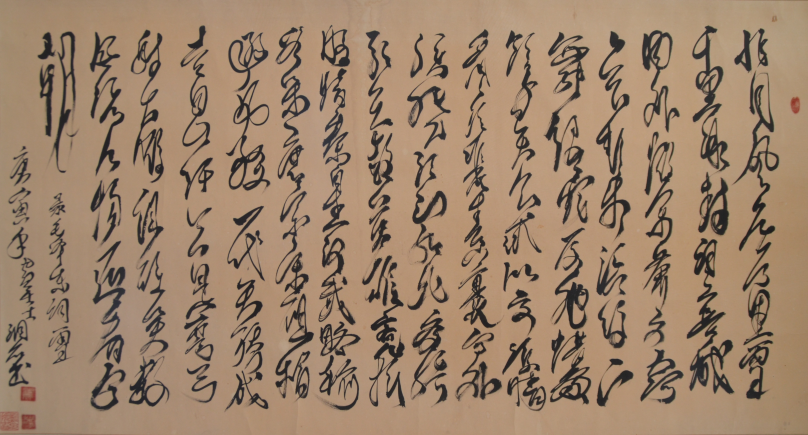 国风光
千里冰封望长城
内外惟余莽莽大河
上下顿失滔滔山
舞银蛇原驰蜡象
欲与天公试比高须晴
日看红装素裹分外
妖娆江山如此多娇引
无数英雄竞折
腰惜秦皇汉武略输
文采唐宗宋祖稍
逊风骚一代天骄成
吉思汗只识弯弓
射大雕俱往矣数
风流人物还看今
朝
录毛主席词
庚寅年